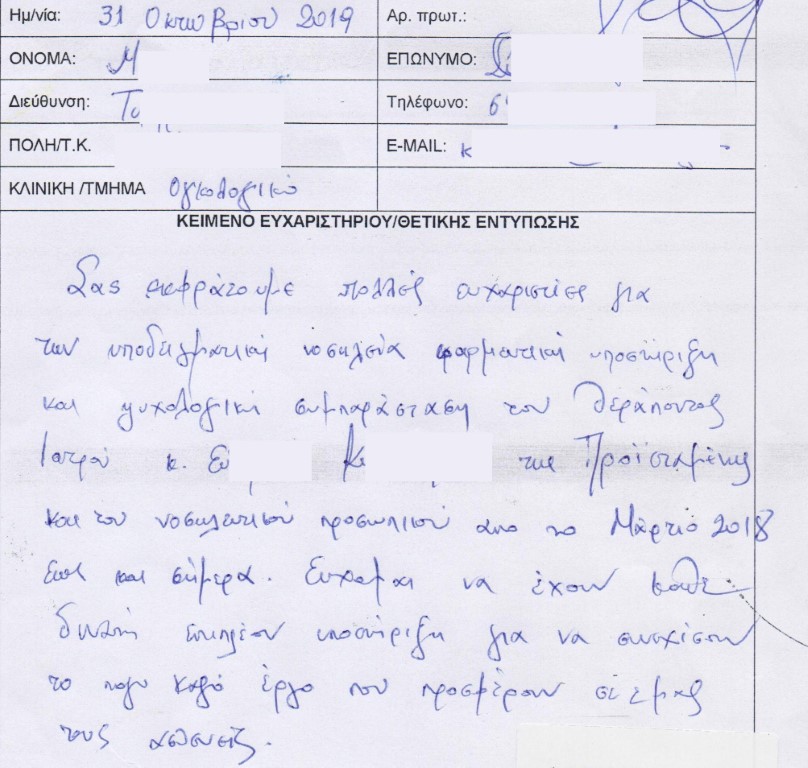 Ημ/νία: 31 Οκτωβρίου 2019 Αρ. πρωτ.:
ΟΝΟΜΑ: Μ ΕΠΩΝΥΜΟ:
Διεύθυνση: Το Τηλέφωνο: 6
ΠΟΛΗ/Τ.Κ. E-MAIL: κ
ΚΛΙΝΙΚΗ /ΤΜΗΜΑ Ογκολογικό
ΚΕΙΜΕΝΟ ΕΥΧΑΡΙΣΤΗΡΙΟΥ/ΘΕΤΙΚΗΣ ΕΝΤΥΠΩΣΗΣ
Σας εκφράζουμε πολλές ευχαριστίες για
την υποδειγματική νοσηλεία φαρμακτική υποστήριξη
και ψυχολογική συμπαράσταση του θεράποντος
Ιατρού κ. Ευ Κ της Προϊσταμένης
και του νοσηλευτικού προσωπικού απο το Μάρτιο 2018
έως και σήμερα. Εύχομαι να έχουν κάθε
δυνατή επιπλέον υποστήριξη για να συνεχίσουν
το πολύ καλό έργο που προσφέρουν σε εμάς
τους ασθενείς.